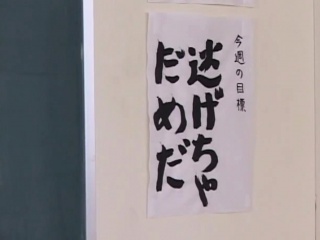 今週の目標
逃げちゃ
だめだ